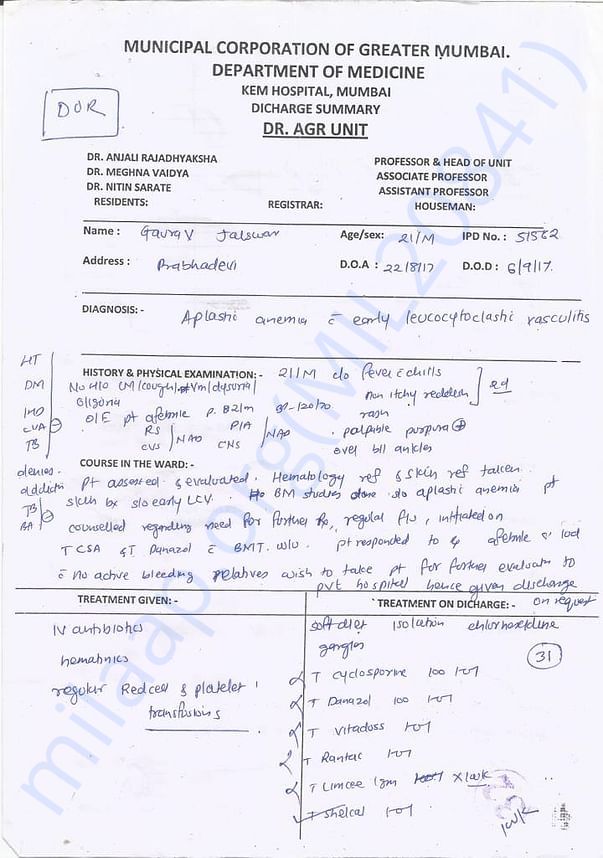 MUNICIPAL CORPORATION OF GREATER MUMBAI.
DEPARTMENT OF MEDICINE
KEM HOSPITAL, MUMBAI
DICHARGE SUMMARY
DOR
DR. AGR UNIT
DR. ANJALI RAJADHYAKSHA PROFESSOR & HEAD OF UNIT
DR. MEGHNA VAIDYA ASSOCIATE PROFESSOR
DR. NITIN SARATE ASSISTANT PROFESSOR
RESIDENTS: REGISTRAR: HOUSEMAN:
Name : Gaurav Jaiswar Age/sex: 21/M IPD No. :
Address : Prabhadevi D.O.A : 22/8/17 D.O.D : 6/9/17.
DIAGNOSIS: - Aplastic anemia c̄ early leucocytoclastic vasculitis
HT
DM
IHD
CVA
TB
HISTORY & PHYSICAL EXAMINATION: - 21/M c/o fever c̄ chills
non itchy reddish rash
oliguria
O/E pt afebrile P. 82/m BP-120/70
RS P/A palpable purpura +
CVS NAD CNS NAD over b/l ankles
denies.
addictn
TB
BA
COURSE IN THE WARD: -
pt assessed & evaluated. Hematology ref & skin ref taken
skin bx s/o early LCV. BM studies done s/o aplastic anemia pt
counselled regarding need for further Rx, regular f/u, initiated on
T CSA & T Danazol c̄ BMT. w/u. pt responded to afebrile
c̄ no active bleeding relatives wish to take pt for further evaluate to
pvt hospital hence given discharge
on request
TREATMENT GIVEN: - TREATMENT ON DICHARGE: -
IV antibiotics
hematinics
regular Red cell & platelet
transfusions
soft diet isolation chlorhexidine
gargles
31
T Cyclosporine 100 1-0-1
T Danazol 100 1-0-1
T Vitadoss 1-0-1
T Rantac 1-0-1
T Limcee 1gm x 1wk
T Shelcal 1-0-1
1wk
milaap.org(MIL20841)